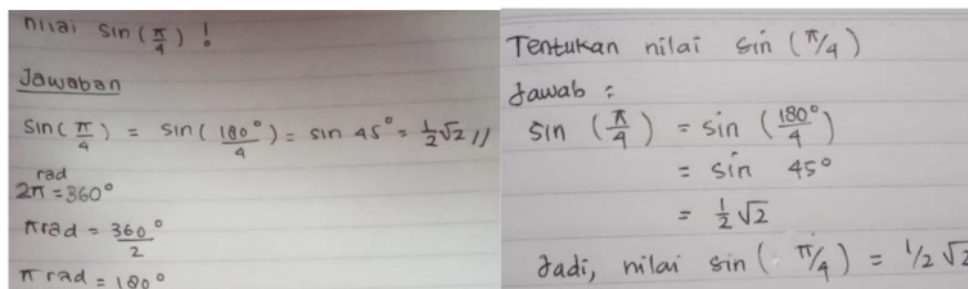 nilai sin(π/4) !
Jawaban
sin(π/4) = sin(180°/4) = sin 45° = 1/2√2 //
2π rad = 360°
π rad = 360°/2
π rad = 180°
Tentukan nilai sin (π/4)
Jawab :
sin (π/4) = sin (180°/4)
= sin 45°
= 1/2 √2
Jadi, nilai sin( π/4) = 1/2 √2